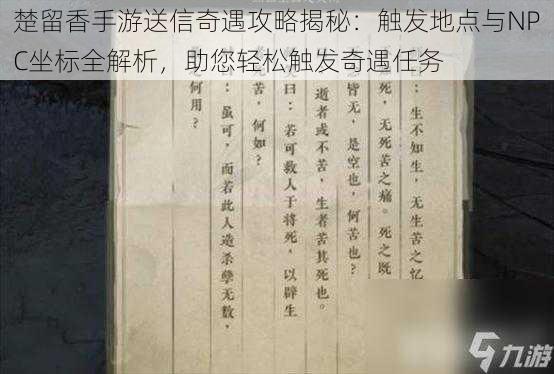 楚留香手游送信奇遇攻略揭秘：触发地点与NP
C坐标全解析，助您轻松触发奇遇任务
：生不知生，无生苦之忆
死，无死苦之痛。死之既
皆无，是空也，何苦也？
逝者或不苦，生者苦其死也。
曰：若可救人于将死，以辟生
苦，何如？
：虽可，而若此人造杀孽无数，
何用？
九游